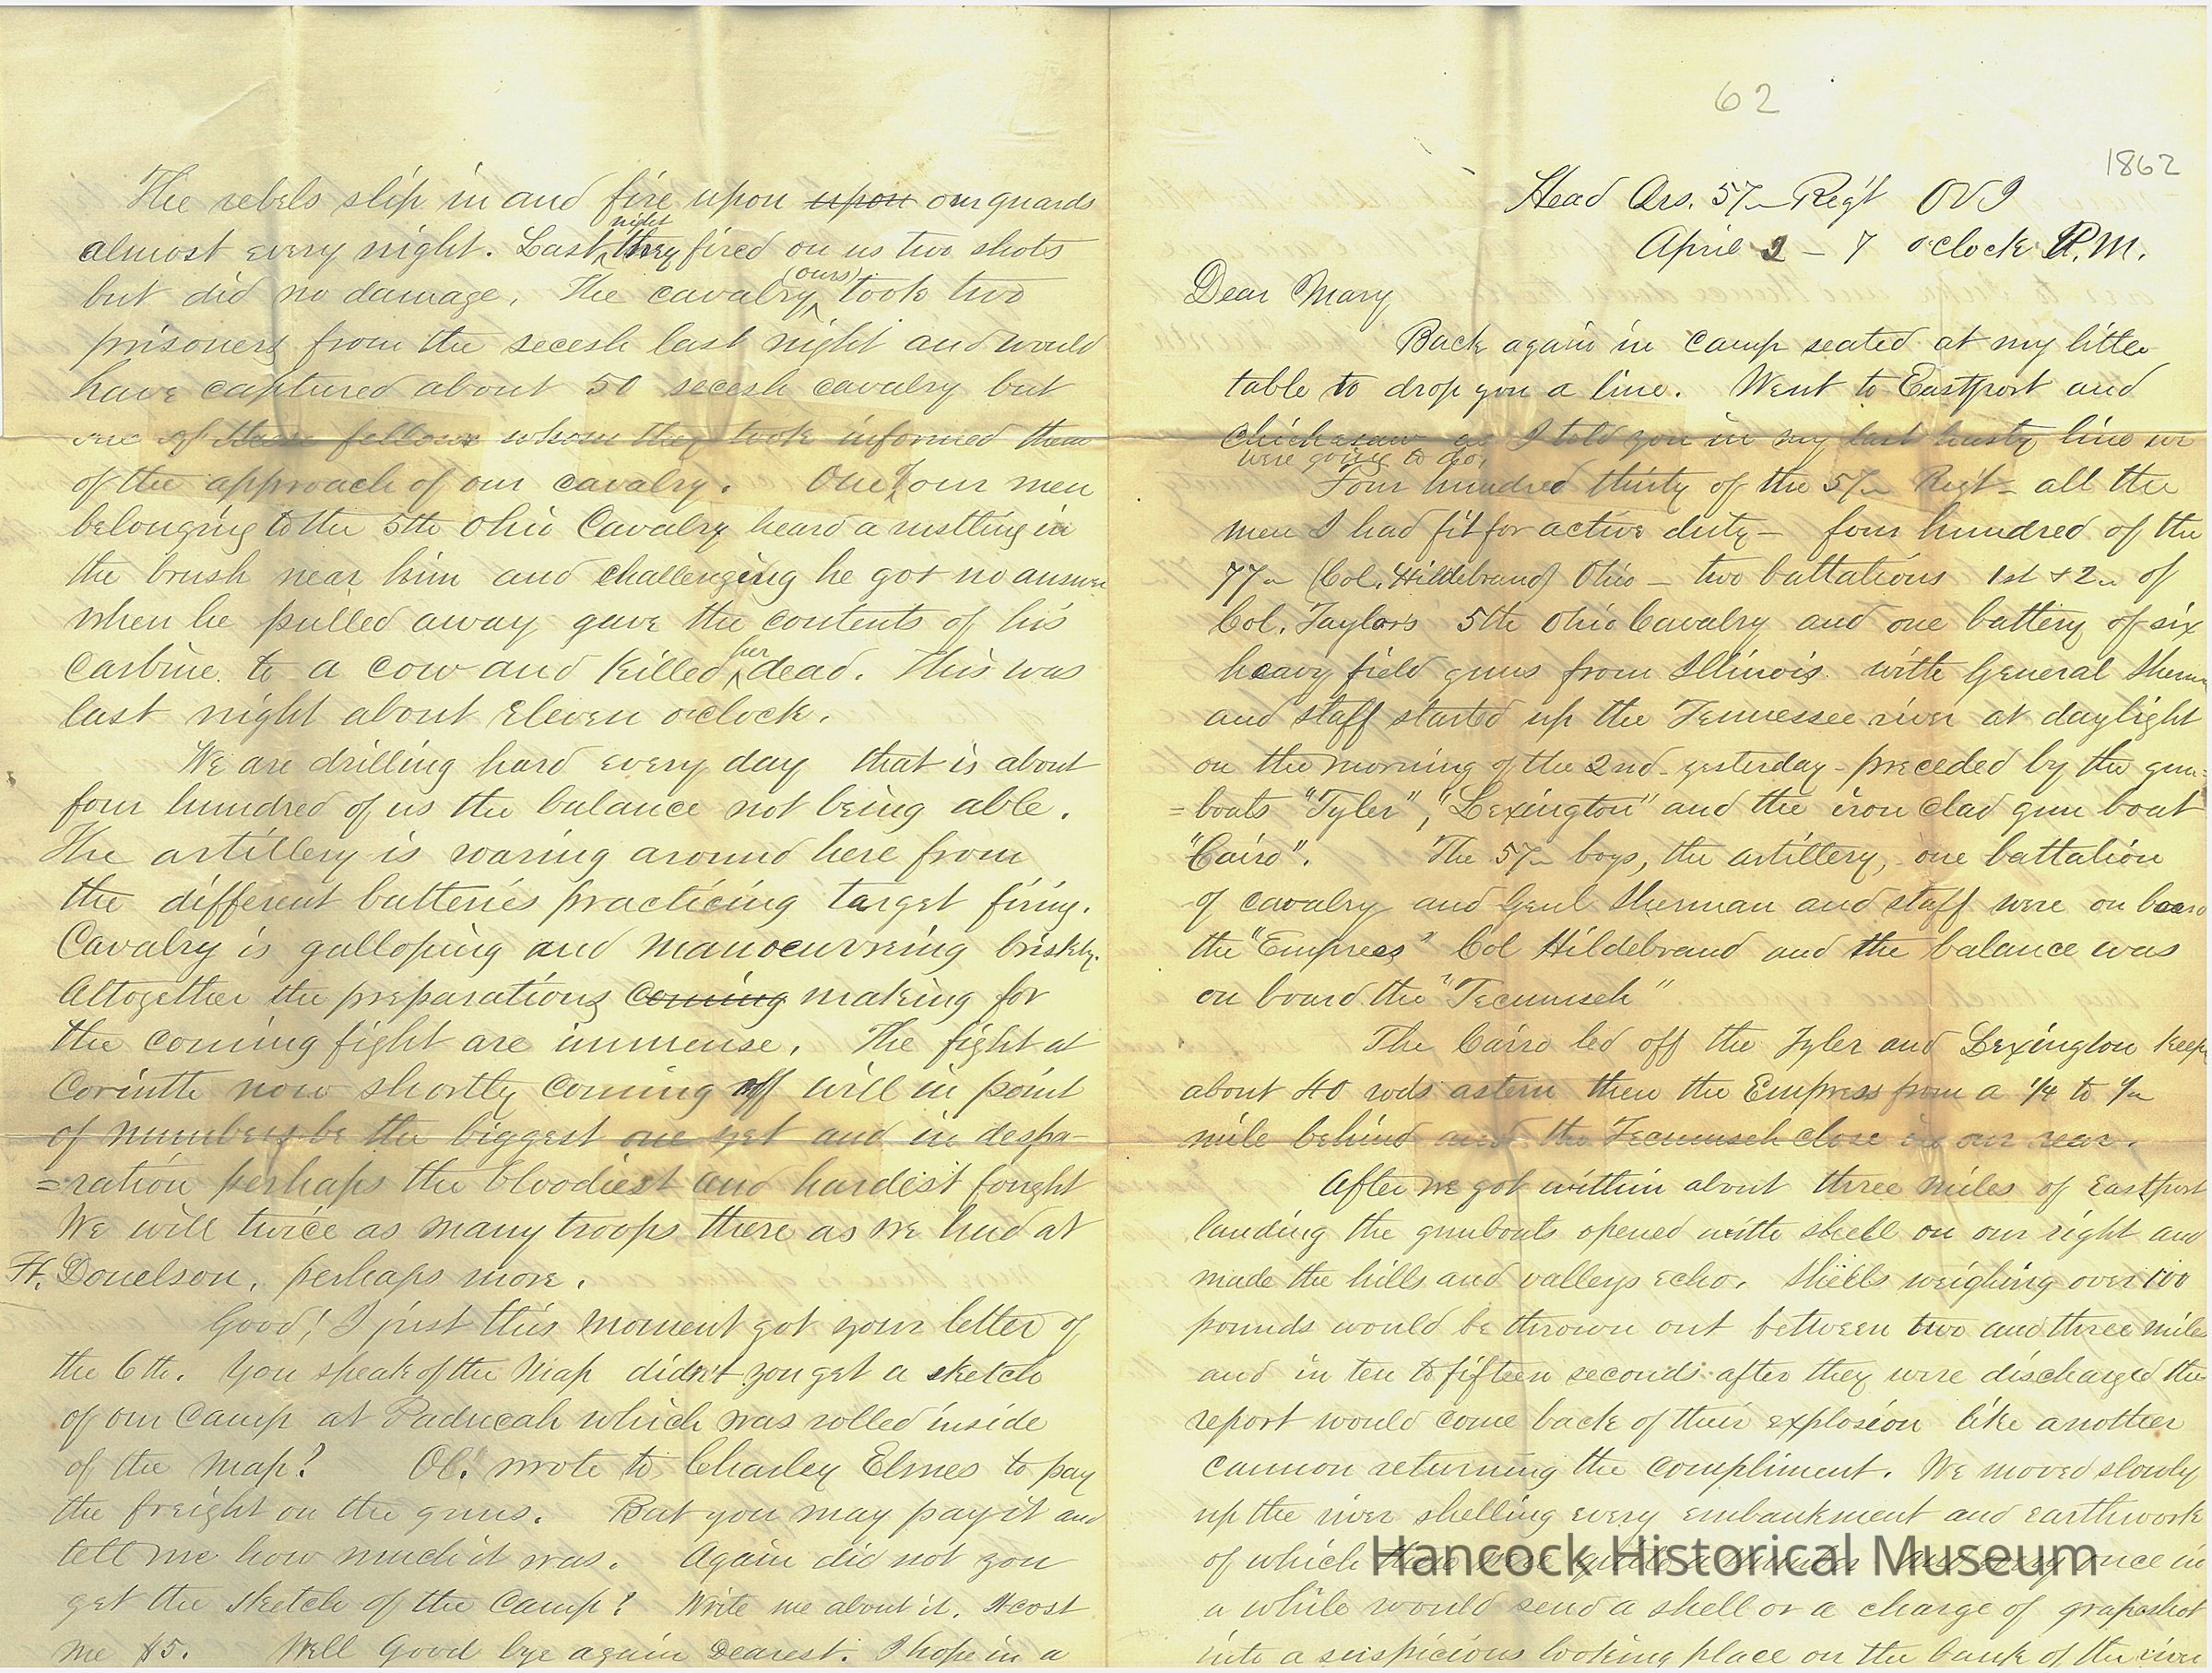 The rebels slip in and fire upon upon our guards
night
almost every night. Last they fired on us two shots
(ours)
but did no damage. The cavalry took two
prisoners from the secesh last night and would
have captured about 50 secesh cavalry but
one of these fellows whom they took informed them
of the approach of our cavalry. One of our men
belonging to the 5th Ohio Cavalry heard a rustling in
the brush near him and challenging he got no answer
when he pulled away gave the contents of his
her
carbine to a cow and killed dead. This was
last night about eleven oclock.
We are drilling hard every day that is about
four hundred of us the balance not being able.
The artillery is roaring around here from
the different batteries practicing target firing.
Cavalry is galloping and manoeuvreing briskly.
Altogether the preparations coming making for
the coming fight are immense. The fight at
Corinth now shortly coming off will in point
of numbers be the biggest one yet and in despa-
=ration perhaps the bloodiest and hardest fought
We will twice as many troops there as we had at
Ft. Donelson, perhaps more.
Good! I just this moment got your letter of
the 6th. You speak of the map didn't you get a sketch
of our Camp at Paducah which was rolled inside
of the map? Ol. wrote to Charley Elmes to pay
the freight on the guns. But you may pay it and
tell me how much it was. Again did not you
get the sketch of the camp? Write me about it. It cost
me $5. Well Good bye again Dearest. I hope in a
62
1862
Head Qrs. 57" Reg't OVI
April 2 - 7 o'clock P.M.
Dear Mary
Back again in camp seated at my little
table to drop you a line. Went to Eastport and
Chickasaw as I told you in my last hasty line we
were going to do,
Four hundred thirty of the 57" Regt - all the
men I had fit for active duty - four hundred of the
77" (Col. Hildebrand) Ohio - two battations 1st & 2" of
Col. Taylors 5th Ohio Cavalry and one battery of six
heavy field guns from Illinois with General Sherman
and staff started up the Tennessee river at daylight
on the morning of the 2nd - yesterday - preceded by the gun=
=boats "Tyler", "Lexington" and the iron clad gun boat
"Cairo". The 57" boys, the artillery, one battalion
of cavalry and Genl Sherman and staff were on board
the "Empress" Col Hildebrand and the balance was
on board the "Tecumseh"
The Cairo led off the Tyler and Lexington keep
about 40 rods astern then the Empress from a 1/4 to 1/2
mile behind and the Tecumseh close in our rear.
After we got within about three miles of Eastport
landing the gunboats opened with shell on our right and
made the hills and valleys echo. Shells weighing over 100
pounds would be thrown out between two and three miles
and in ten to fifteen seconds after they were discharged the
report would come back of their explosion like another
cannon returning the compliment. We moved slowly
up the river shelling every embankment and earthwork
of which there were quite a number and every once in
a while would send a shell or a charge of grapeshot
into a suspicious looking place on the bank of the river
Hancock Historical Museum